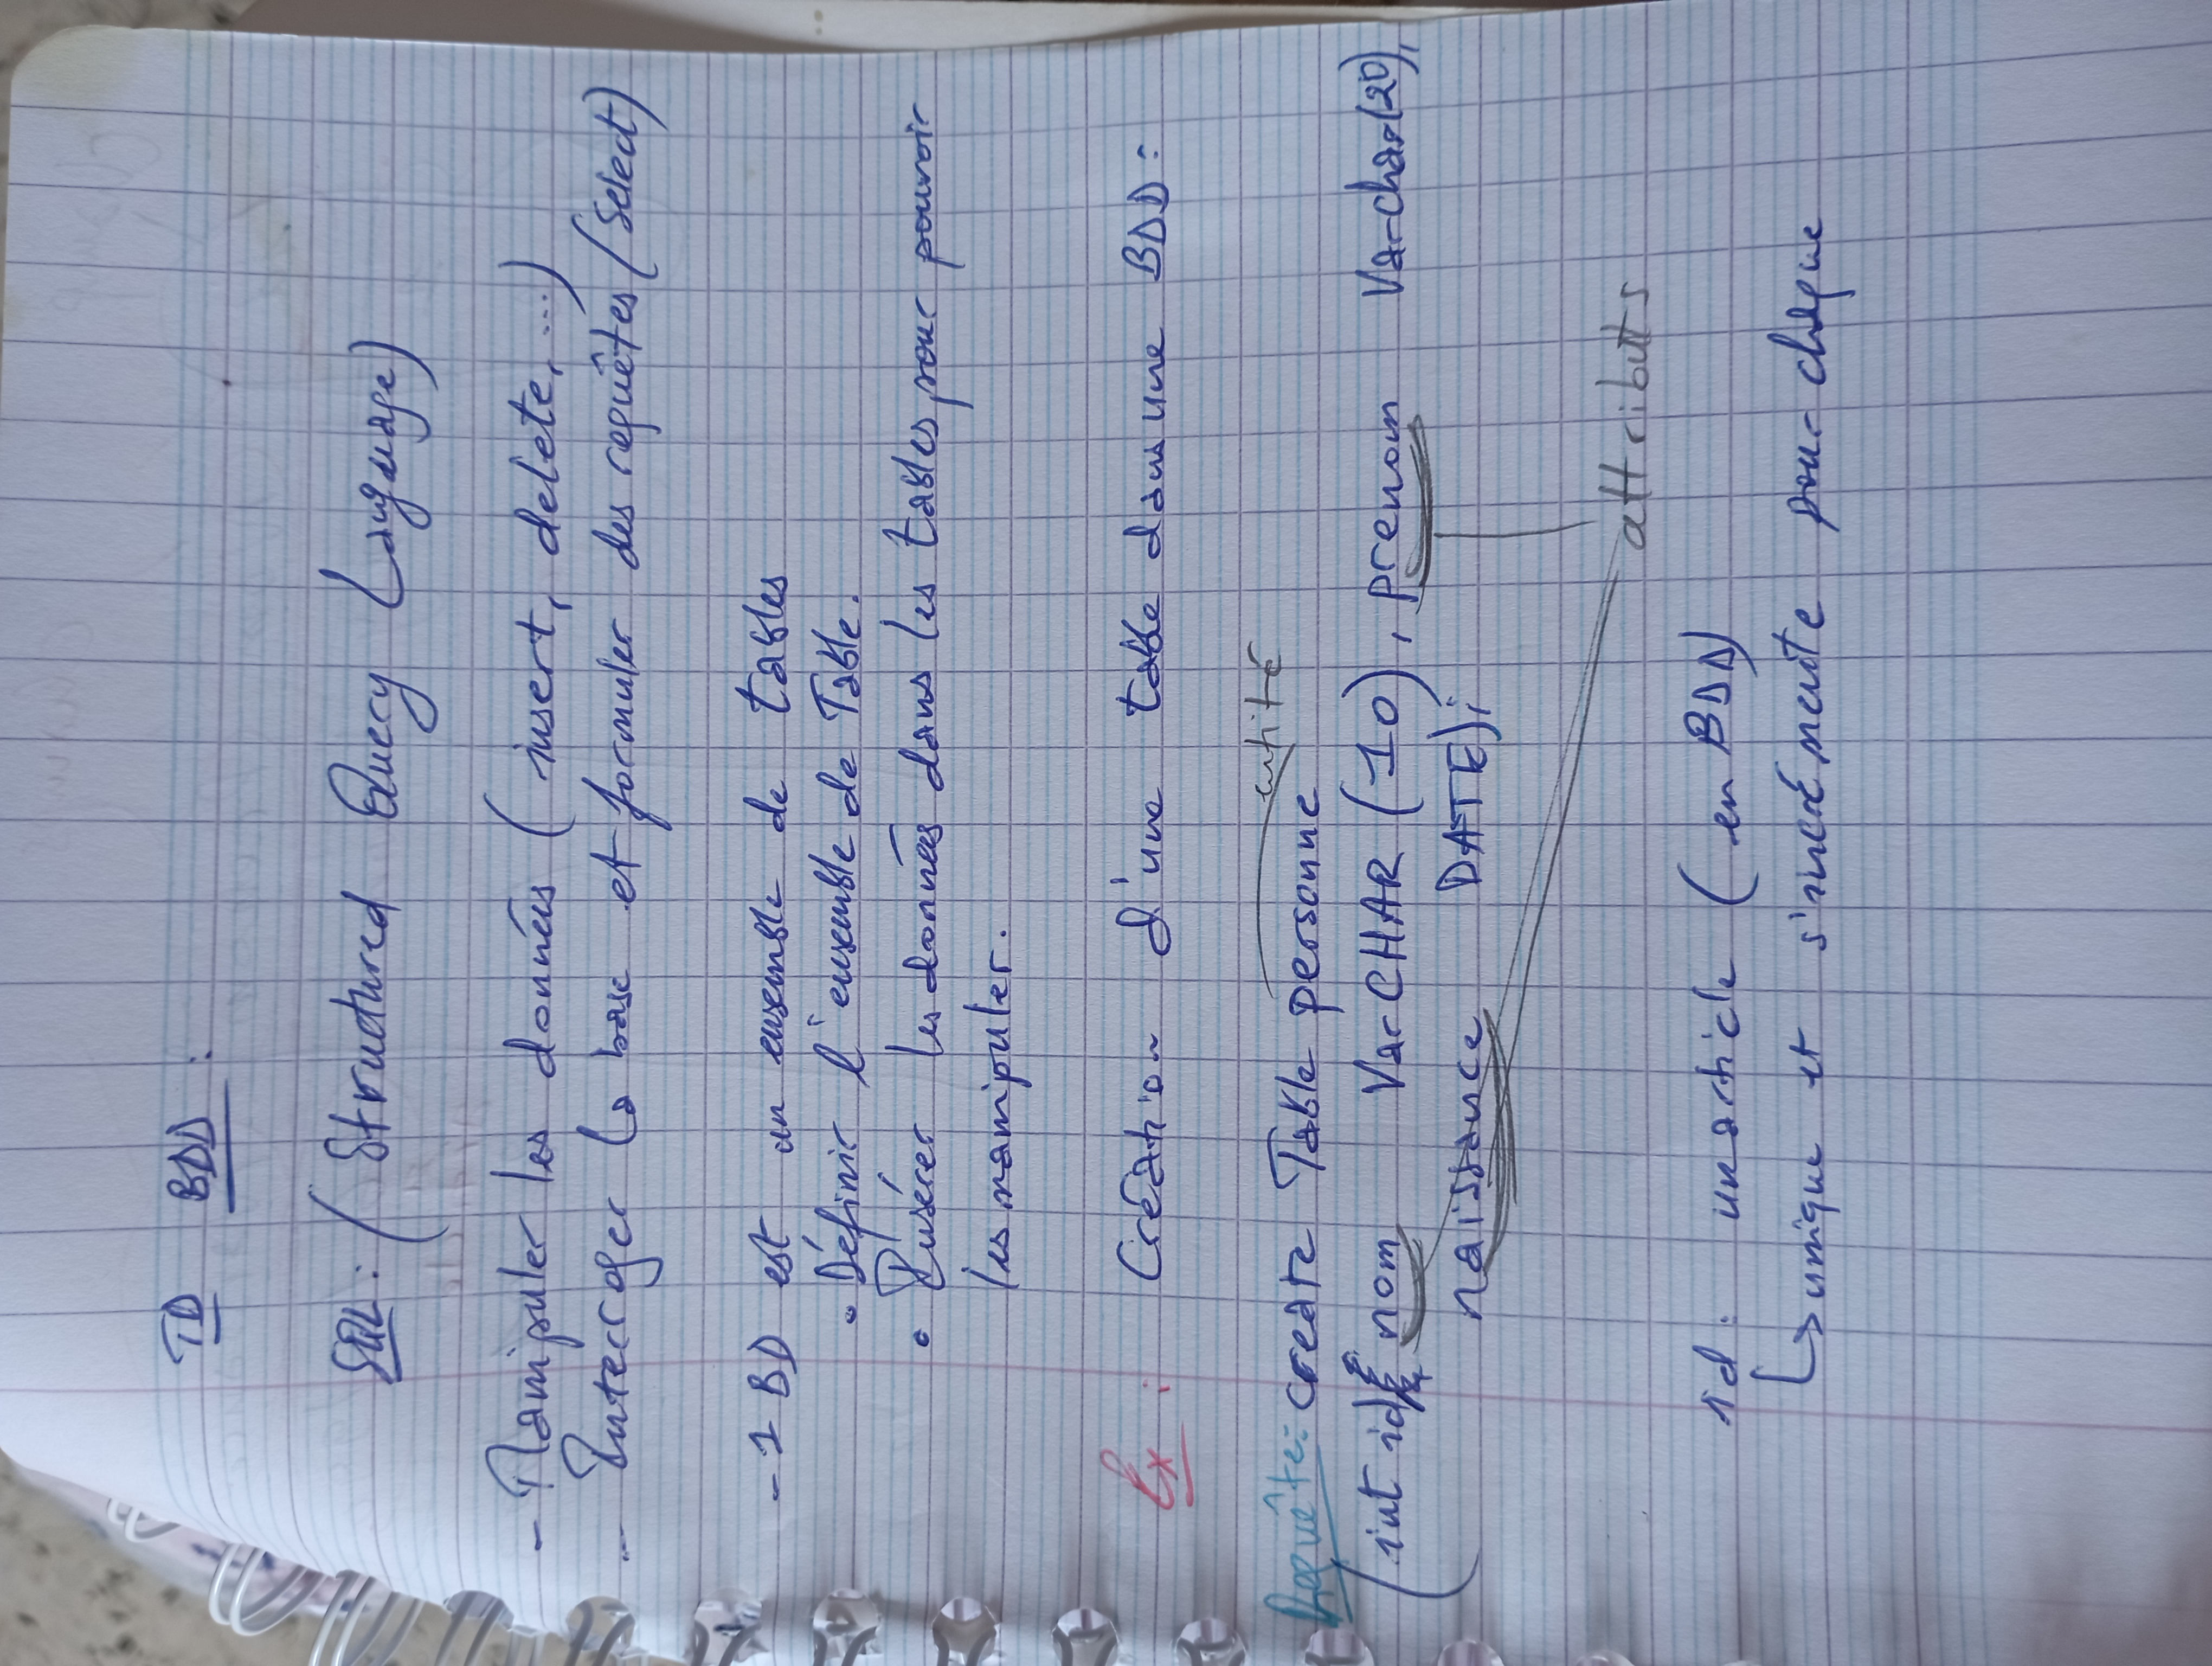 TD BDD :
SQL : ( Structured Query Language)
- Manipuler les données ( insert, delete, ...)
- Interroger la base et formuler des requêtes (Select)
- 1 BD est un ensemble de tables
• Définir l'ensemble de Table.
• Insérer les données dans les tables pour pouvoir
les manipuler.
Ex : Création d'une table dans une BDD :
entité
Requête : create Table personne
(int id, nom VarCHAR (10), prenom Varchar(20),
naissance DATE);
attributs
id : un article ( en BDD)
↳ unique et s'incrémente pour chaque